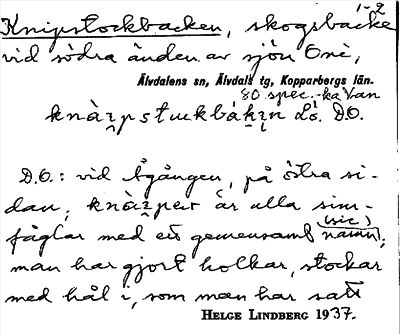 1-2
Knipstockbacken, skogsbacke
vid södra änden av sjön Onė,
Älvdalens sn, Älvdals tg, Kopparbergs län.
80 spec.-ka Van
knàipstukbákin Lò. D.O.
D.O.: vid Ågången, på östra si-
dan, knàiper är alla sim-
(sic)
fåglar med ett gemensamt namn,
man har gjort holkar, stockar
med hål i, som man har satt
HELGE LINDBERG 1937.